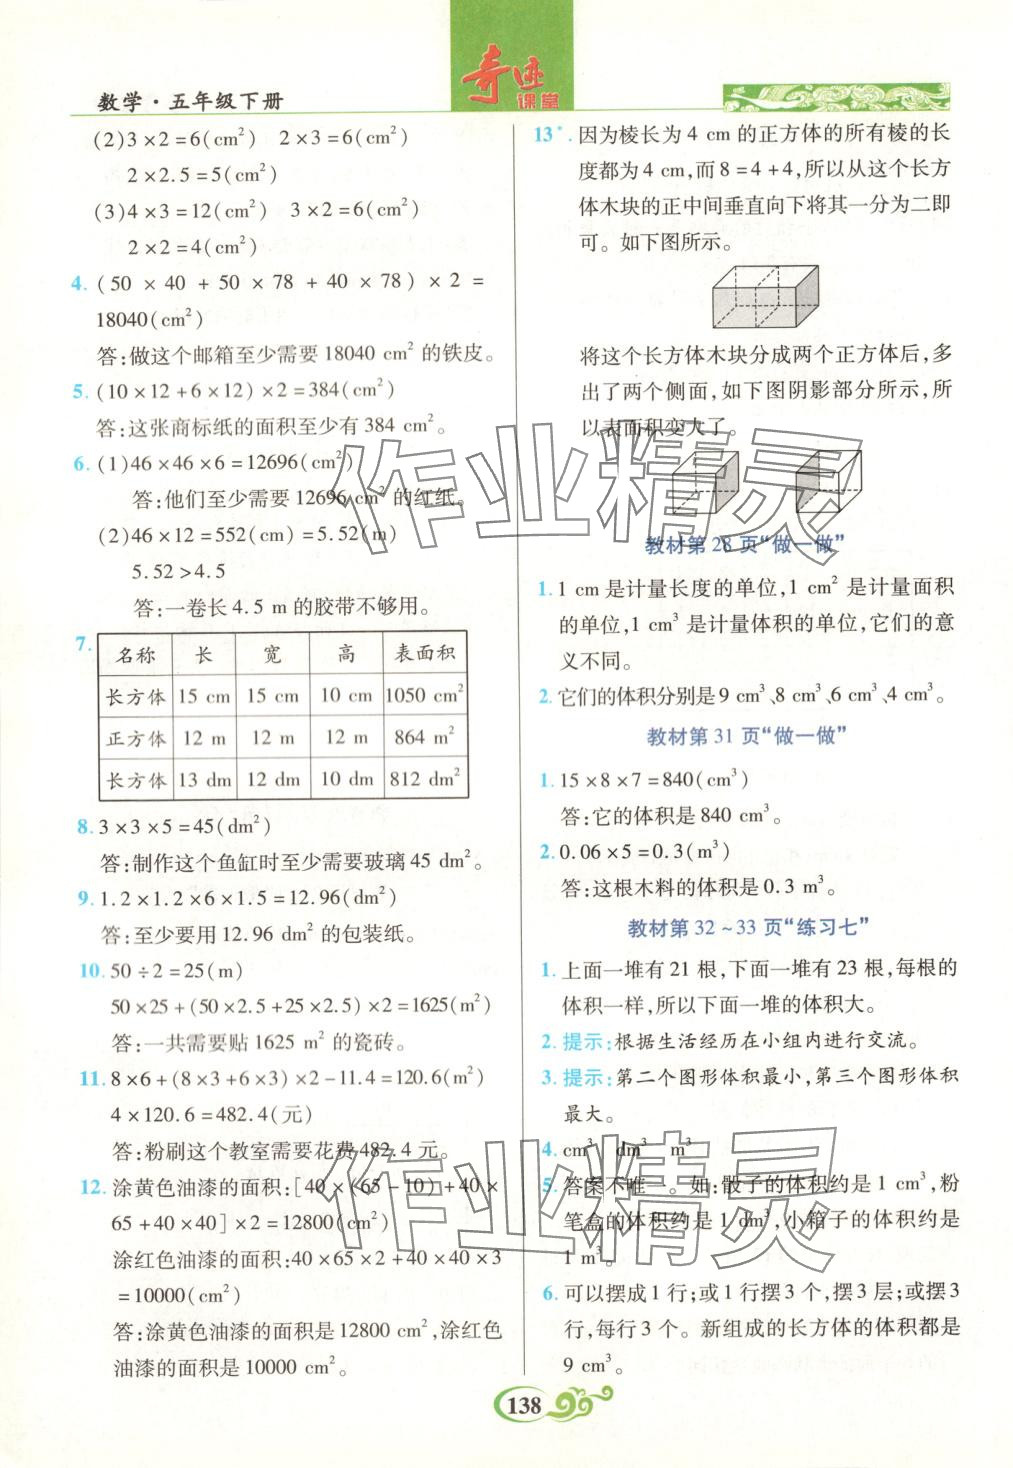 奇迹课堂
数学·五年级下册
(2)3×2=6(cm²)　2×3=6(cm²)
2×2.5=5(cm²)
(3)4×3=12(cm²)　3×2=6(cm²)
2×2=4(cm²)
4.(50×40+50×78+40×78)×2=
18040(cm²)
答:做这个邮箱至少需要18040 cm²的铁皮。
5.(10×12+6×12)×2=384(cm²)
答:这张商标纸的面积至少有384 cm²。
6.(1)46×46×6=12696(cm²)
答:他们至少需要12696 cm²的红纸。
(2)46×12=552(cm)=5.52(m)
5.52>4.5
答:一卷长4.5 m的胶带不够用。
7.
名称　长　宽　高　表面积
长方体　15 cm　15 cm　10 cm　1050 cm²
正方体　12 m　12 m　12 m　864 m²
长方体　13 dm　12 dm　10 dm　812 dm²
8.3×3×5=45(dm²)
答:制作这个鱼缸时至少需要玻璃45 dm²。
9.1.2×1.2×6×1.5=12.96(dm²)
答:至少要用12.96 dm²的包装纸。
10.50÷2=25(m)
50×25+(50×2.5+25×2.5)×2=1625(m²)
答:一共需要贴1625 m²的瓷砖。
11.8×6+(8×3+6×3)×2-11.4=120.6(m²)
4×120.6=482.4(元)
答:粉刷这个教室需要花费482.4元。
12.涂黄色油漆的面积:[40×(65-10)+40×
65+40×40]×2=12800(cm²)
涂红色油漆的面积:40×65×2+40×40×3
=10000(cm²)
答:涂黄色油漆的面积是12800 cm²,涂红色
油漆的面积是10000 cm²。
13*.因为棱长为4 cm的正方体的所有棱的长
度都为4 cm,而8=4+4,所以从这个长方
体木块的正中间垂直向下将其一分为二即
可。如下图所示。
将这个长方体木块分成两个正方体后,多
出了两个侧面,如下图阴影部分所示,所
以表面积变大了。
教材第28页“做一做”
1.1 cm是计量长度的单位,1 cm²是计量面积
的单位,1 cm³是计量体积的单位,它们的意
义不同。
2.它们的体积分别是9 cm³、8 cm³、6 cm³、4 cm³。
教材第31页“做一做”
1.15×8×7=840(cm³)
答:它的体积是840 cm³。
2.0.06×5=0.3(m³)
答:这根木料的体积是0.3 m³。
教材第32~33页“练习七”
1.上面一堆有21根,下面一堆有23根,每根的
体积一样,所以下面一堆的体积大。
2.提示:根据生活经历在小组内进行交流。
3.提示:第二个图形体积最小,第三个图形体积
最大。
4.cm³　dm³　m³
5.答案不唯一。如:骰子的体积约是1 cm³,粉
笔盒的体积约是1 dm³,小箱子的体积约是
1 m³。
6.可以摆成1行;或1行摆3个,摆3层;或摆3
行,每行3个。新组成的长方体的体积都是
9 cm³。
138
作业精灵
作业精灵